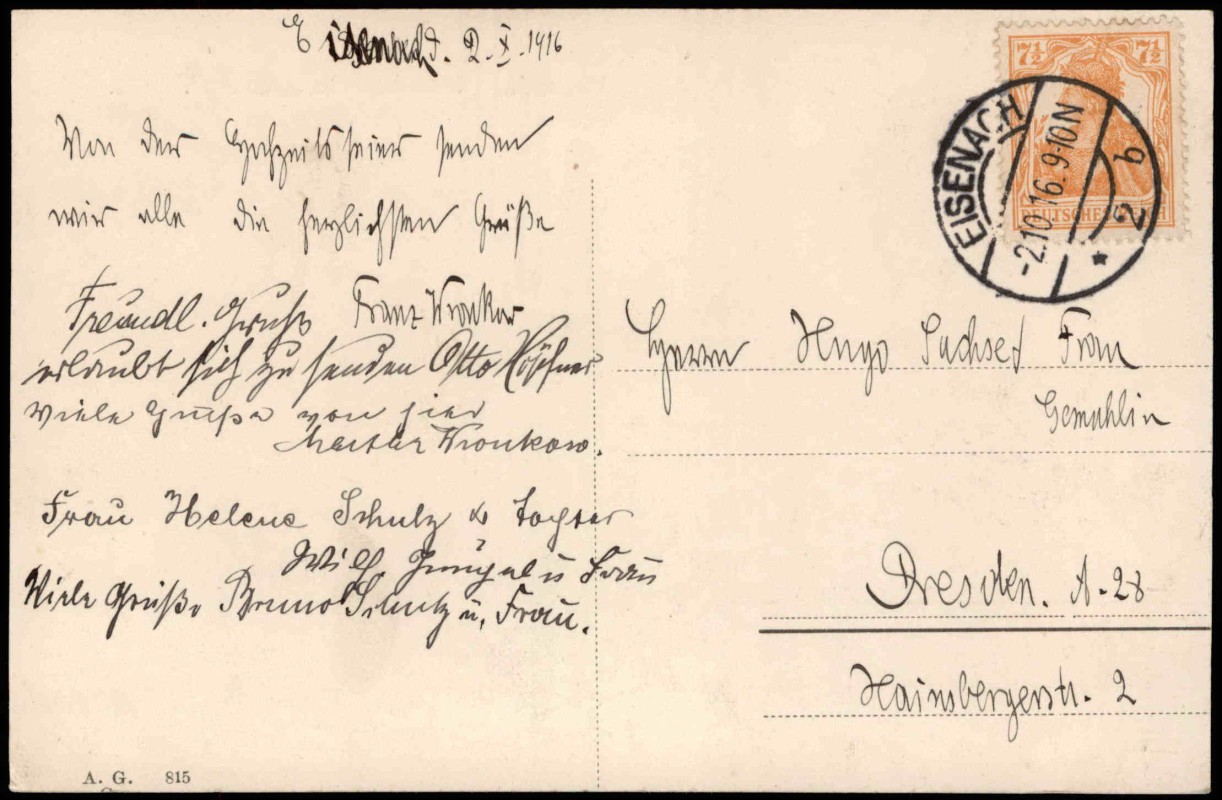 Eisenach d. 2. X. 1916
Von der Hochzeitsfeier senden
wir alle die herzlichsten Grüße
Freundl. Gruß Franz Kronkow
erlaubt sich zu senden Otto
viele Grüße von hier
Kronkow.
Frau Helene Schulz & Tochter
Wilh. u Frau
Viele Grüße Bruno Schulz u. Frau.
7½ 7½
DEUTSCHES REICH
EISENACH
-2.10.16.9-10N
* 2b
Herrn Hugo Sachse & Frau
Gemahlin
Dresden. A-28
Hainsbergerstr. 2
A. G. 815